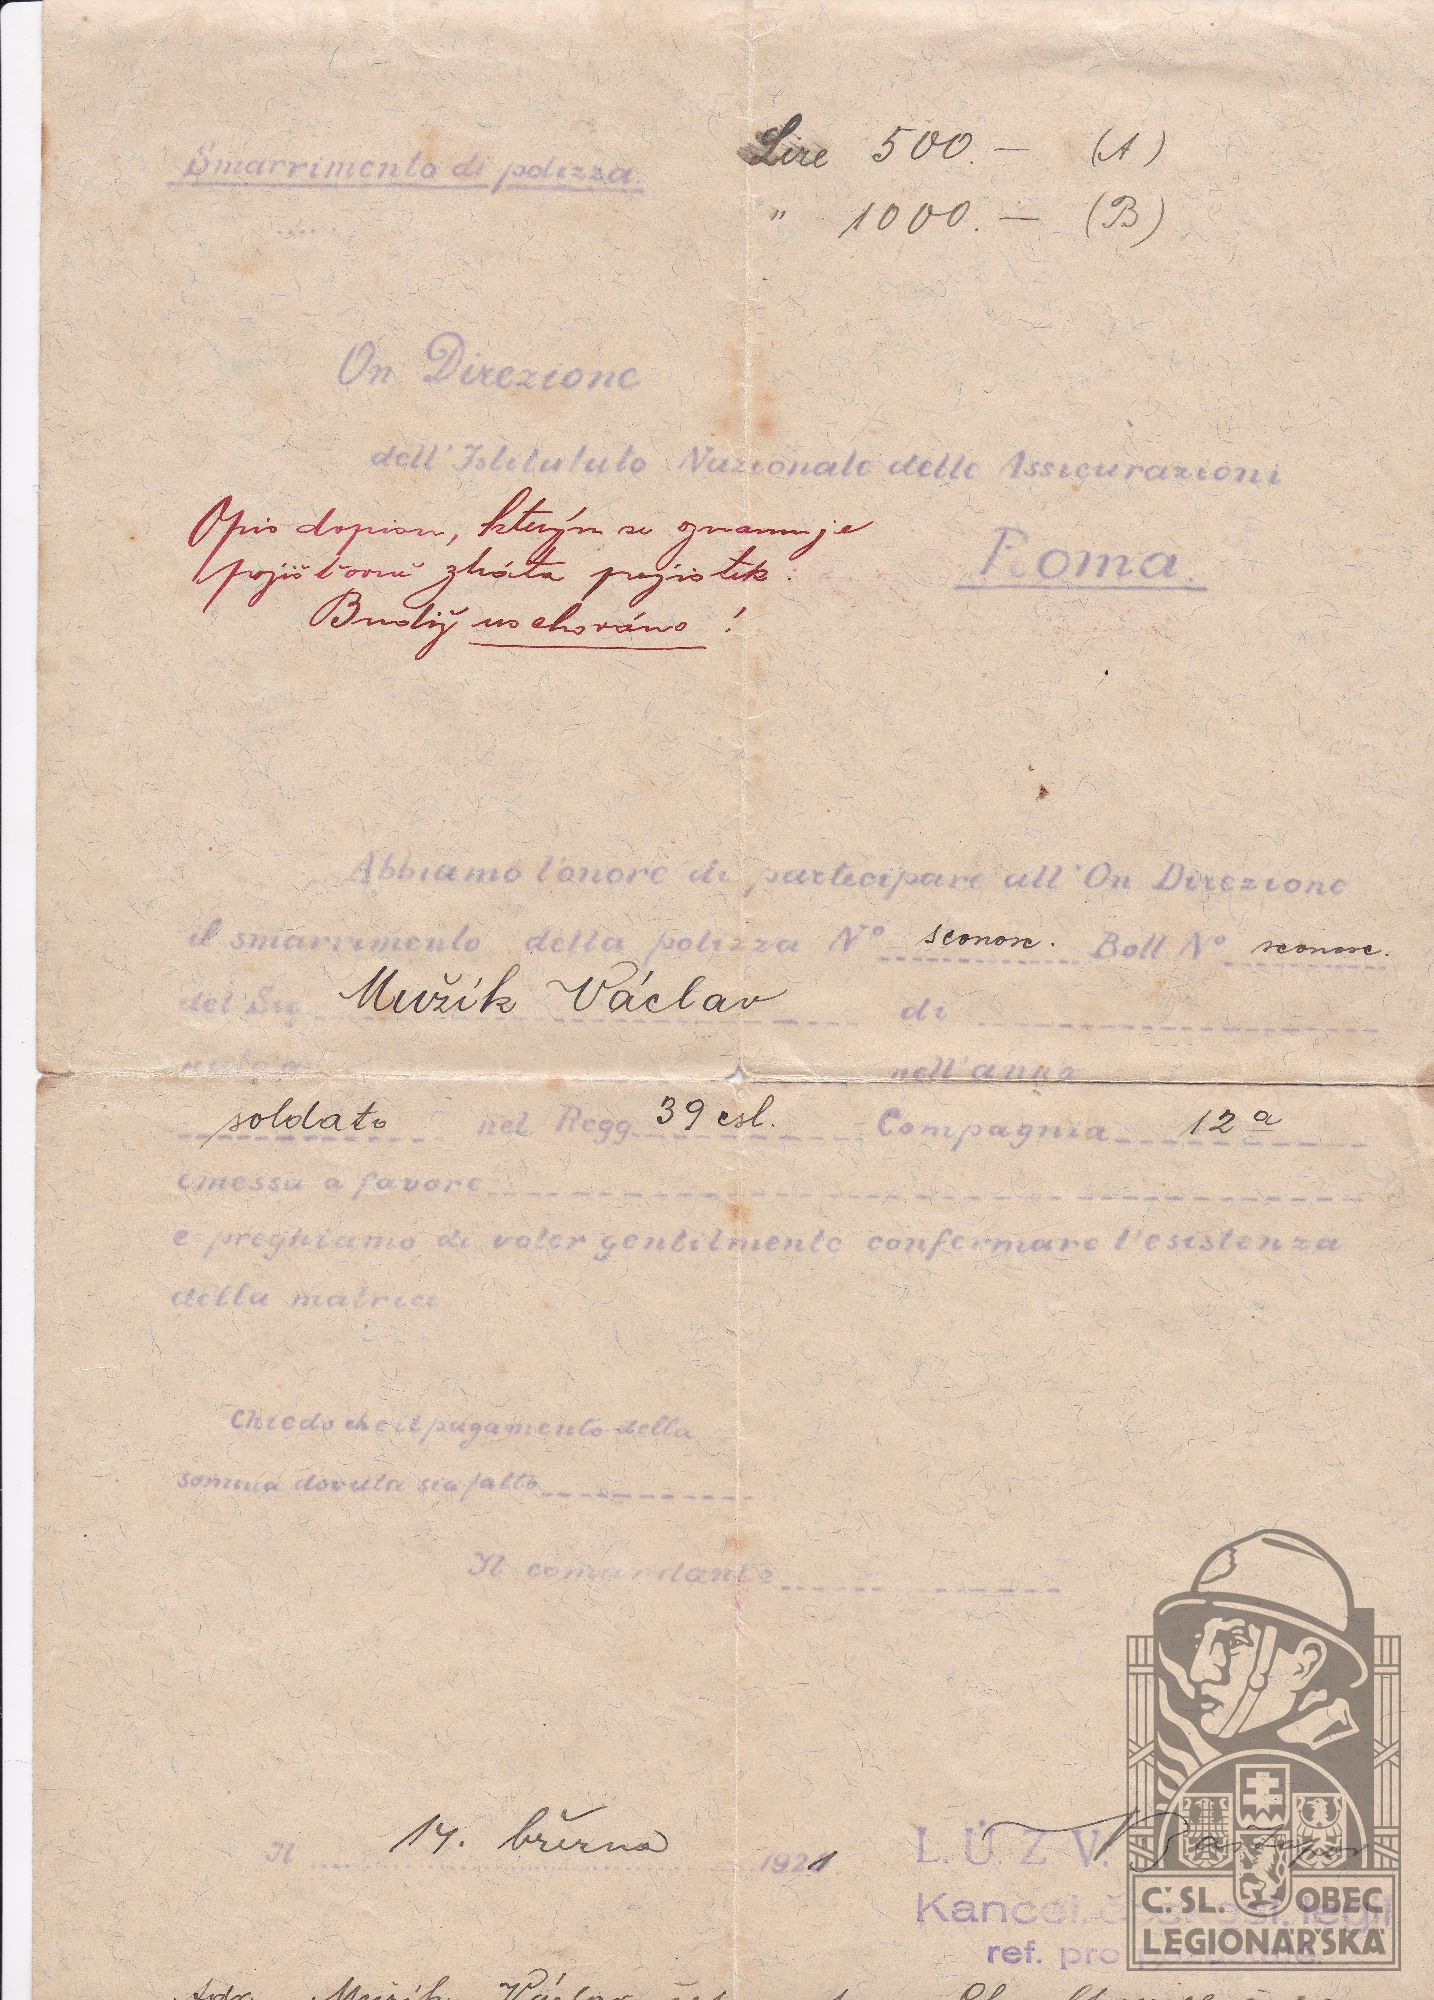 Smarrimento di polizza.
Lire 500.— (A)
" 1000.— (B)
On Direzione
dell'Istituto Nazionale delle Assicurazioni
Roma.
Opis dopisu, kterým se oznamuje
pojišťovně ztráta pojistek.
Budiž uschováno!
Abbiamo l'onore di partecipare all'On Direzione
il smarrimento della polizza Nº sconosc. Boll Nº sconosc.
del Sig. Mužík Václav di
nato a nell'anno
soldato nel Regg. 39 csl. Compagnia 12a
emessa a favore
e preghiamo di voler gentilmente confermare l'esistenza
della matrici
Chiedo che il pagamento della
somma dovuta sia fatto
Il comandante
Il 14. března 1921.
L. Ú. Z. V.
Kancel. legií
ref. pro
Č.SL. OBEC
LEGIONÁŘSKÁ
Mužík Václav